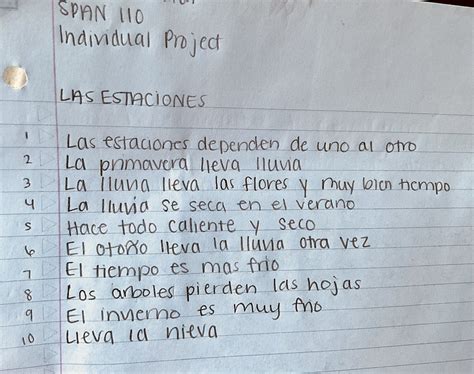 SPAN 110
Individual Project
LAS ESTACIONES
1 Las estaciones dependen de uno al otro
2 La primavera lleva lluvia
3 La lluvia lleva las flores y muy bien tiempo
4 La lluvia se seca en el verano
5 Hace todo caliente y seco
6 El otoño lleva la lluvia otra vez
7 El tiempo es mas frio
8 Los arboles pierden las hojas
9 El invierno es muy frio
10 Lleva la nieva